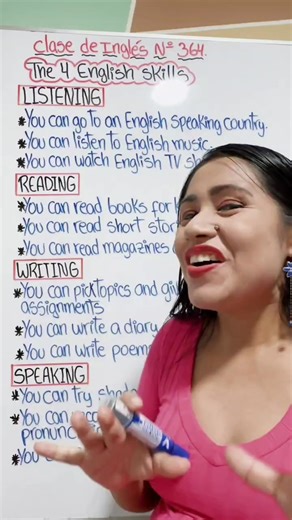 clase de Inglés Nº 364.
The 4 English skills
LISTENING
*You can go to an English speaking country.
*You can listen to English music.
*You can watch English TV
READING
*You can read books for
*You can read short
*You can read magazines
WRITING
*You can pick topics and
assignments
*You can write a diary
*You can write poem
SPEAKING
*You can try
*You can